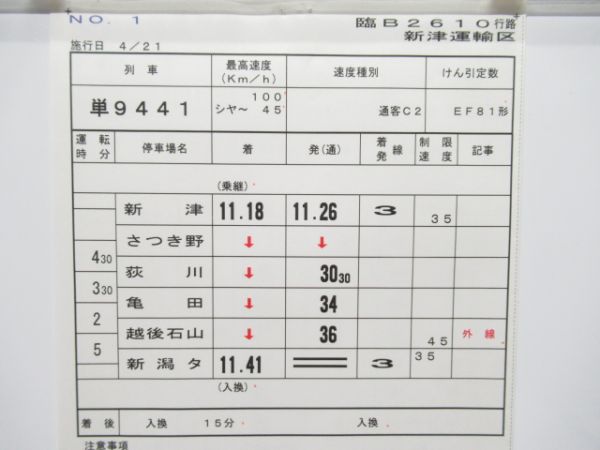 NO. 1 臨B2610行路
新津運輸区
施行日 4/21
列車 最高速度(Km/h) 速度種別 けん引定数
単9441 100 シヤ〜 45 通客C2 EF81形
運転時分 停車場名 着 発(通) 着発線 制限速度 記事
(乗継)
新津 11.18 11.26 3 35
さつき野 ↓ ↓
430 荻川 ↓ 3030
330 亀田 ↓ 34
2 越後石山 ↓ 36 45 外線
5 新潟タ 11.41 3 35
(入換)
着後 入換 15分 入換
注意事項